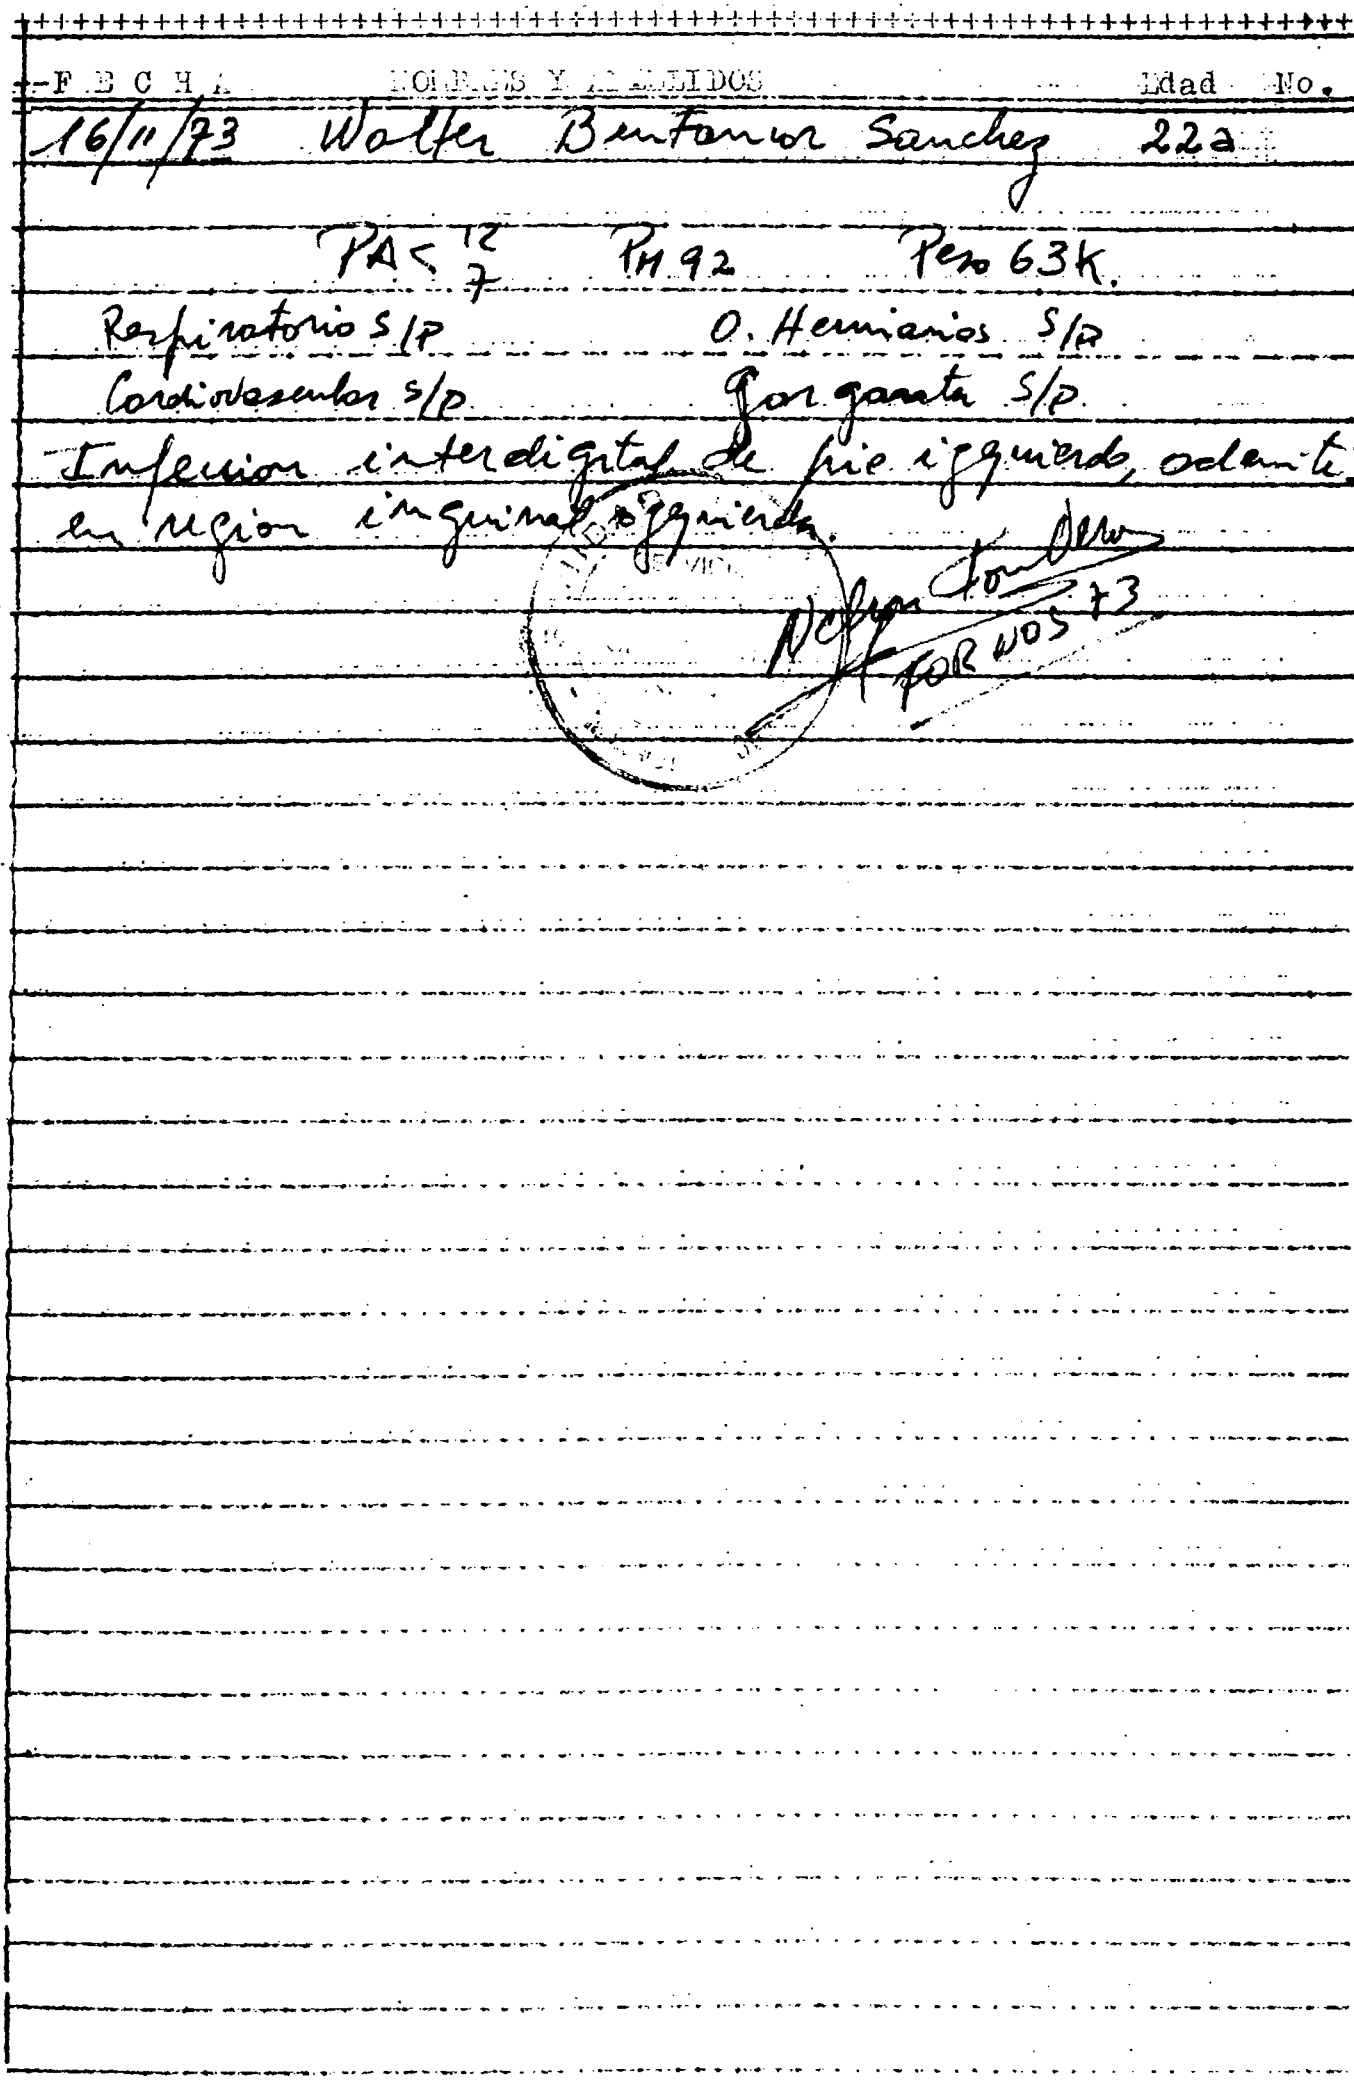 F E C H A NOMBRES Y APELLIDOS Edad No.
16/11/73 Walter Bentancor Sanchez 22a
PA < 12 7 PM 92 Peso 63K.
Respiratorio s/p O. Herniarios s/p
Cardiovascular s/p Garganta s/p.
Infeccion interdigital de pie izquierdo, adenitis
en region inguinal izquierda.
Nelson
FOR NOS 73